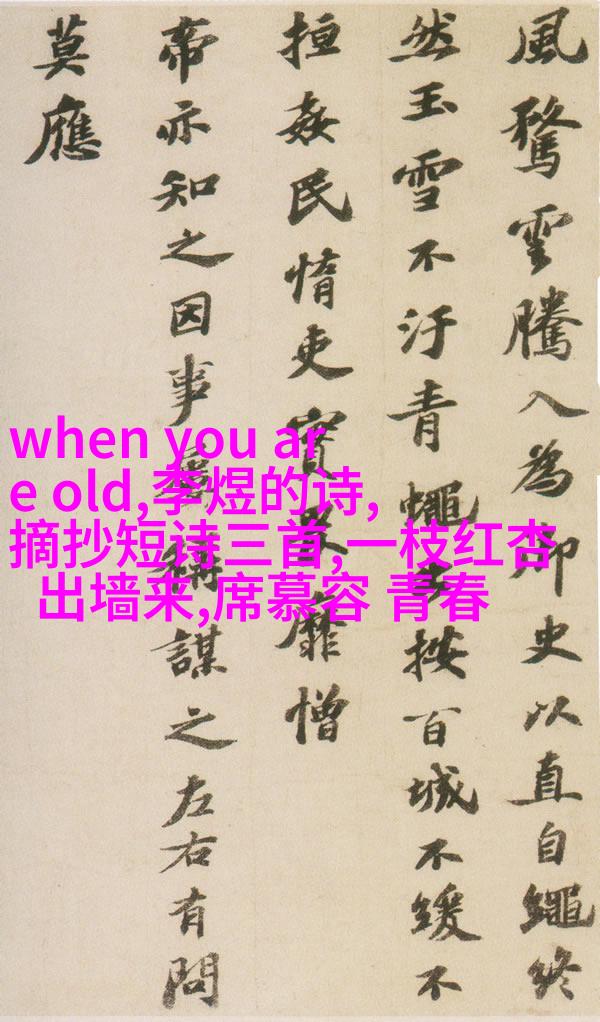 風騖雲騰入為御史以直自繩終
然玉雪不汙青蠅出按百城不緩不
搄姦民惰吏實畏靡憎
帝亦知之因事屢稱謀之左右有問
莫應
when you ar
e old,李煜的诗,
摘抄短诗三首,一枝红杏
出墙来,席慕容 青春